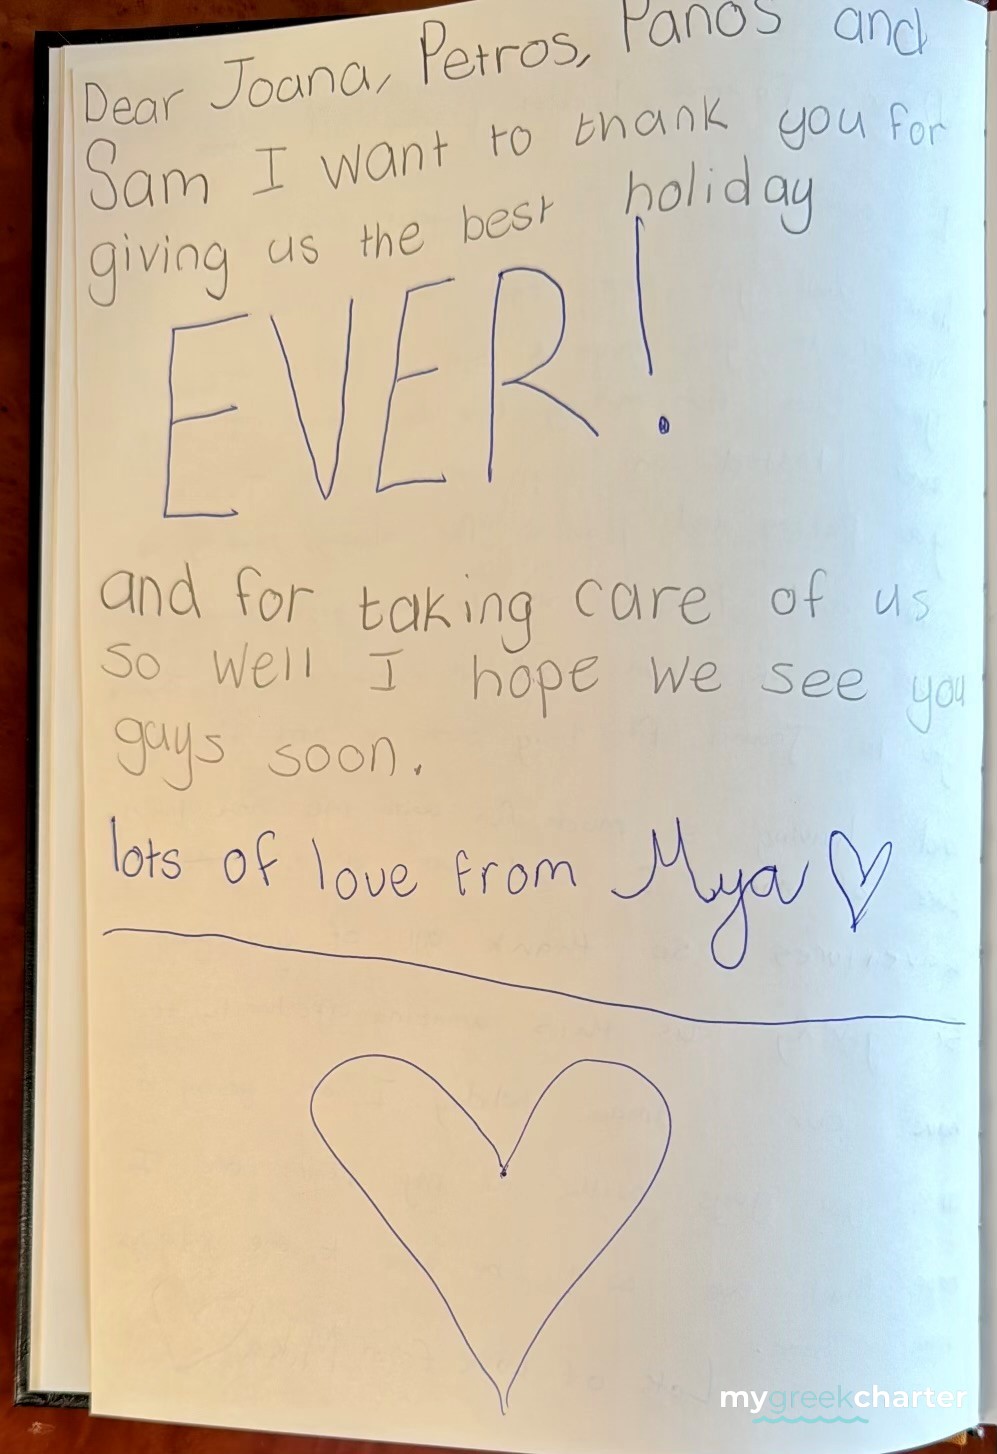 Dear Joana, Petros, Panos and
Sam I want to thank you for
giving us the best holiday
EVER!
and for taking care of us
so well I hope we see you
guys soon.
lots of love from Mya
mygreekcharter